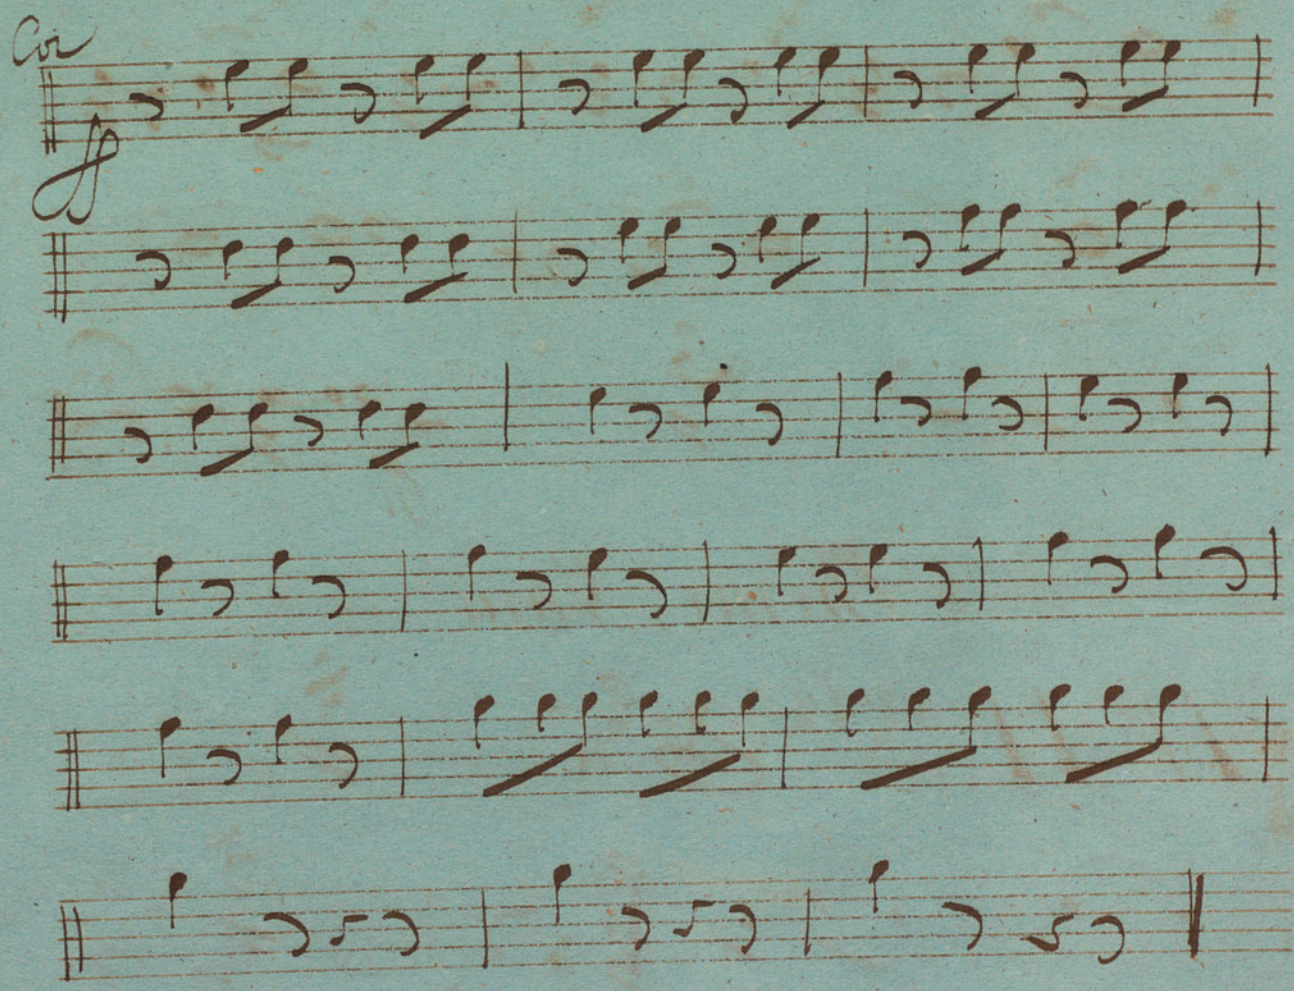 Cor
ff